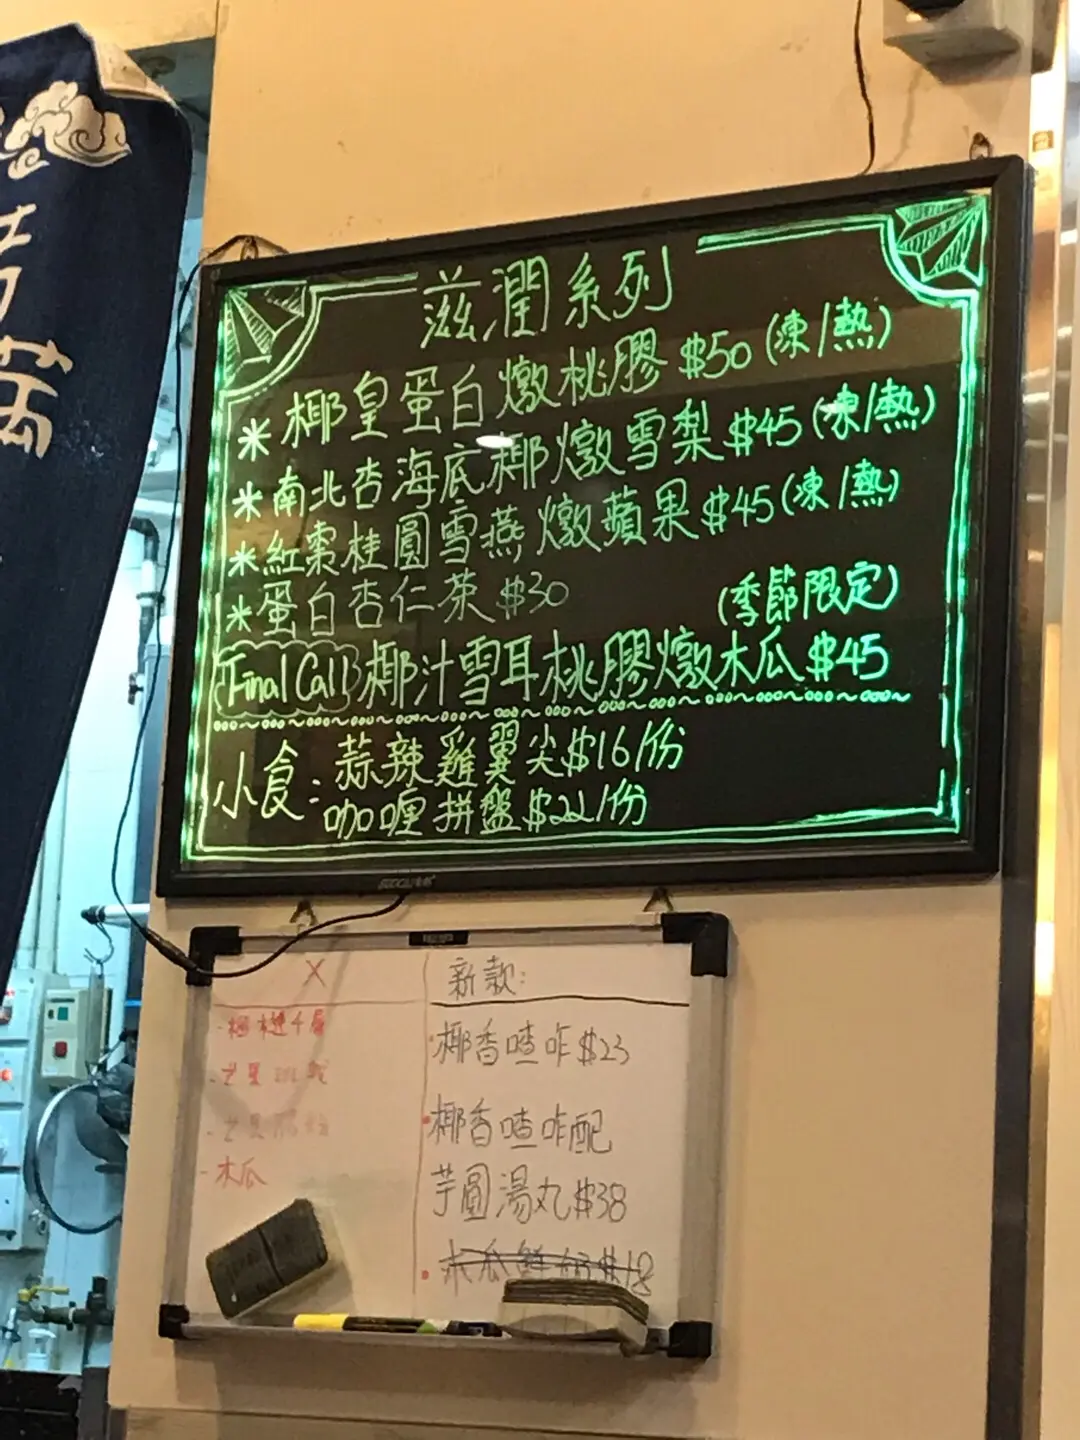 滋潤系列
*椰皇蛋白燉桃膠 $50 (凍/熱)
*南北杏海底椰燉雪梨 $45 (凍/熱)
*紅棗桂圓雪燕燉蘋果 $45 (凍/熱)
*蛋白杏仁茶 $30 (季節限定)
Final Call 椰汁雪耳桃膠燉木瓜 $45
小食：蒜辣雞翼尖 $16/份
咖喱拼盤 $22/份
X
·木瓜
新款：
·椰香喳咋 $23
·椰香喳咋配
芋圓湯丸 $38
·木瓜鮮奶 $18